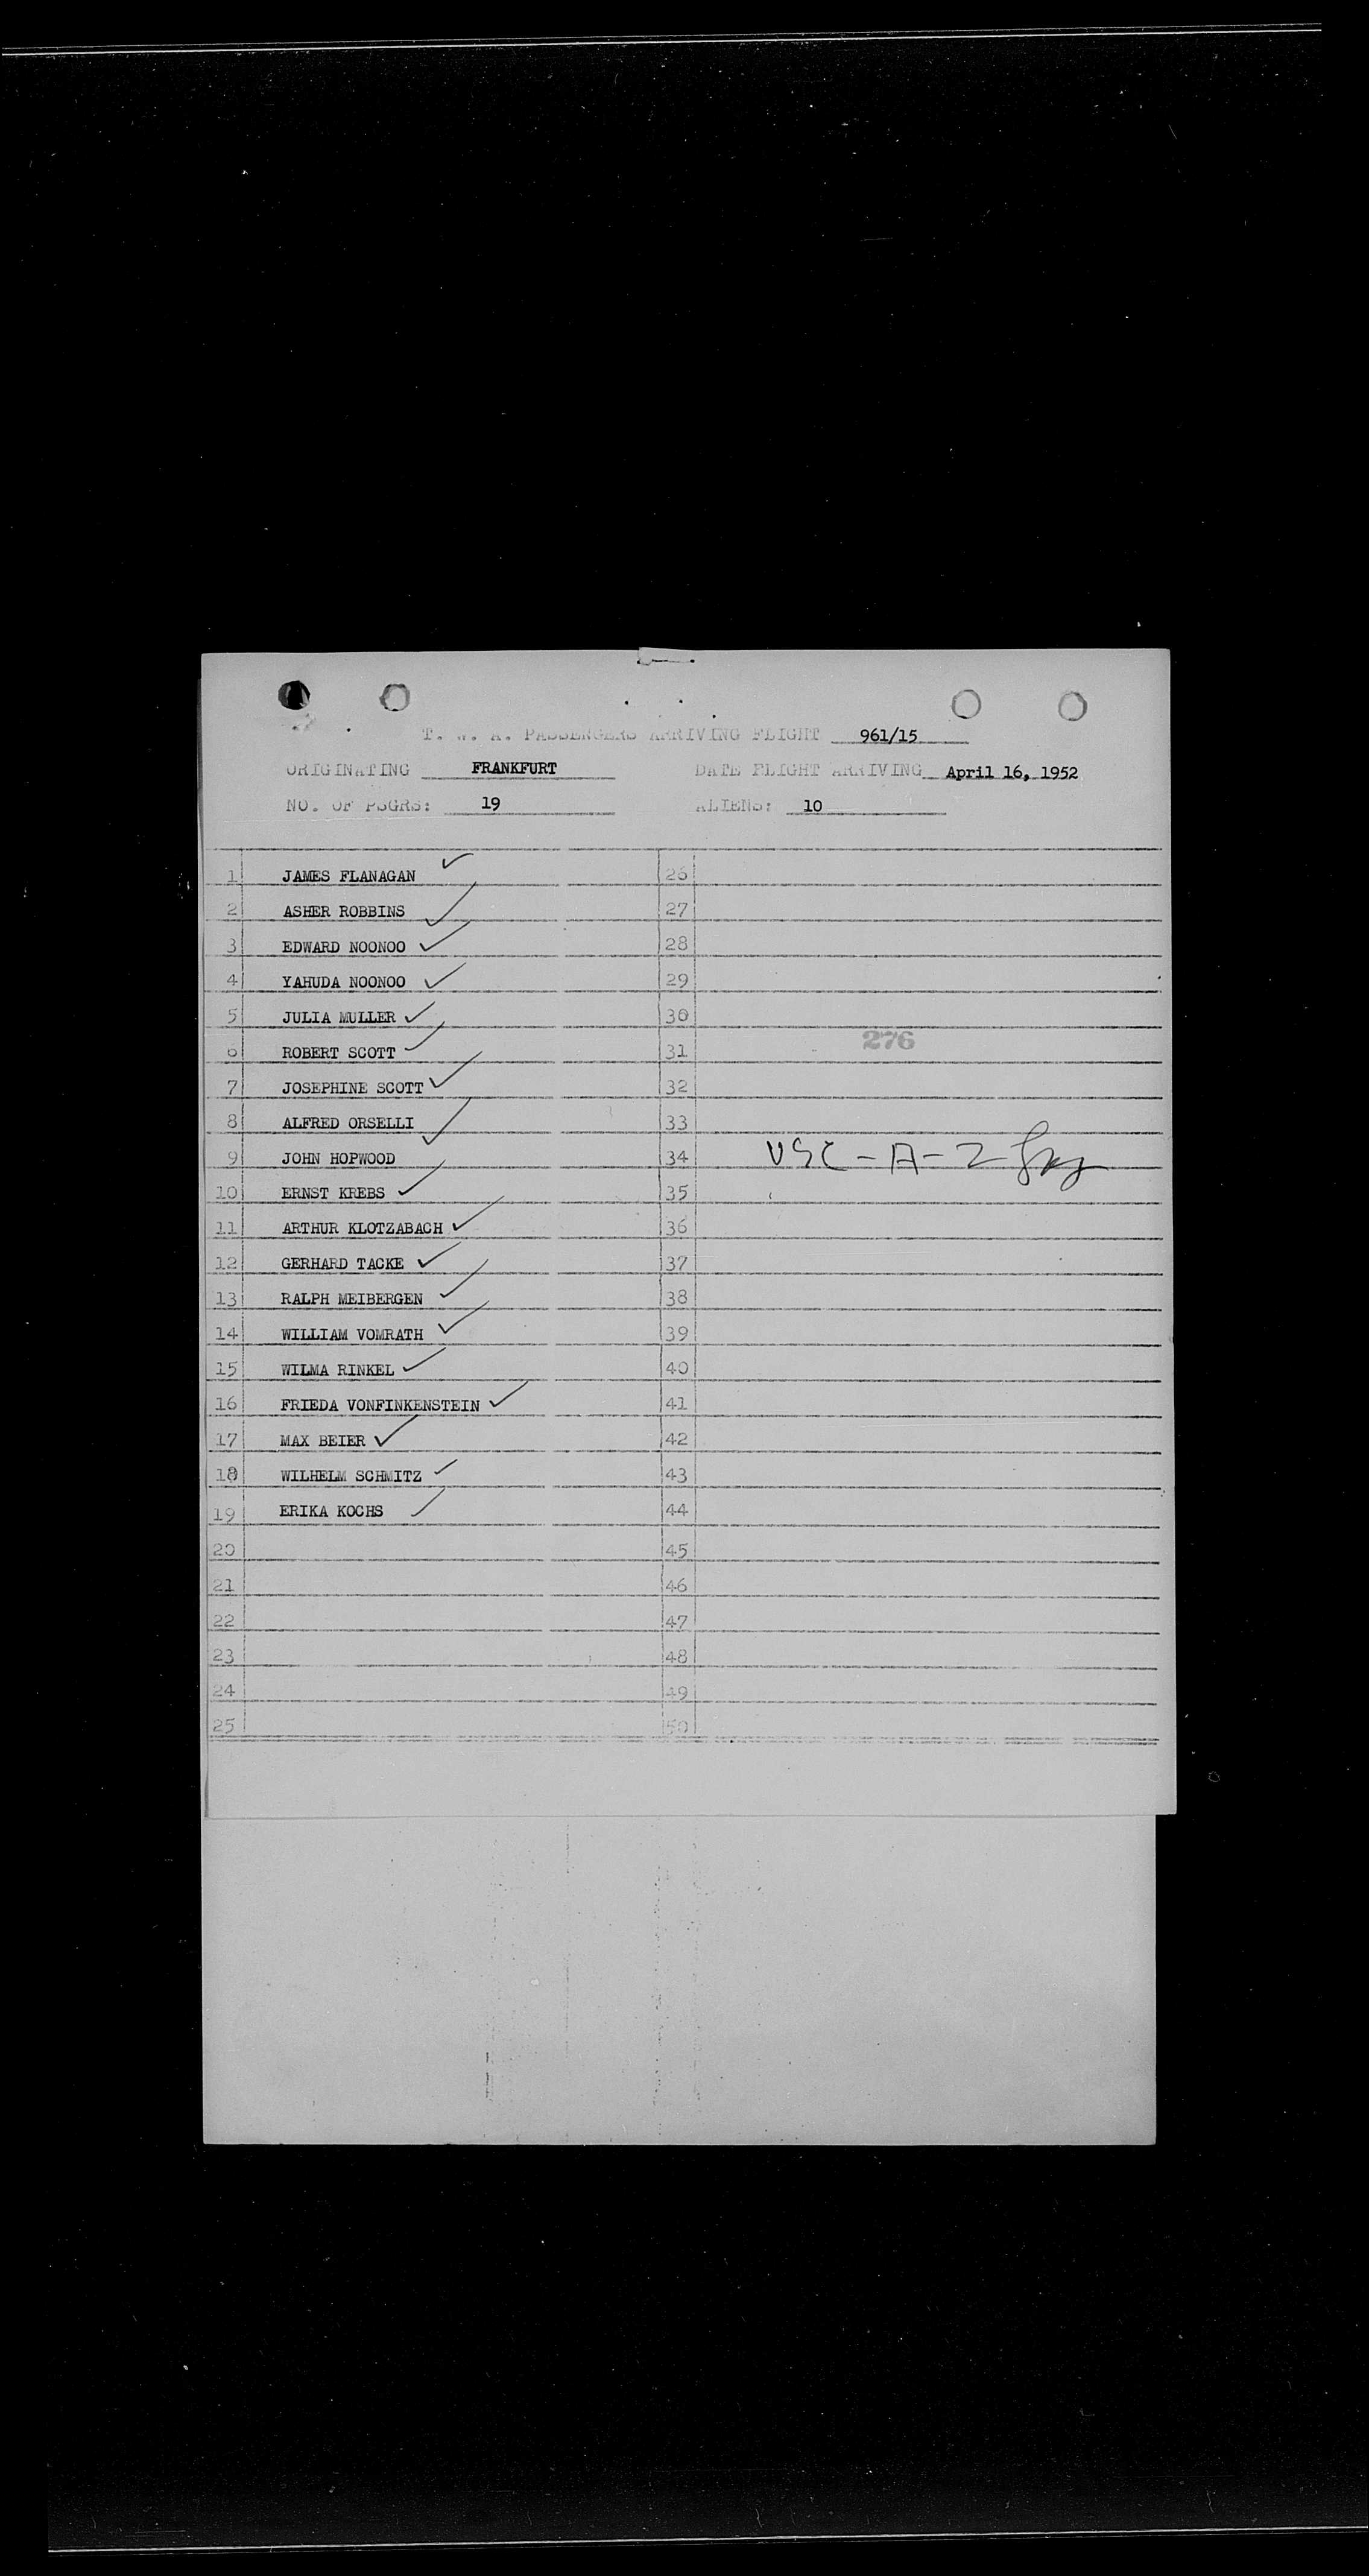 T. W. A. PASSENGERS ARRIVING FLIGHT 961/15
ORIGINATING FRANKFURT DATE FLIGHT ARRIVING April 16, 1952
NO. OF PSGRS: 19 ALIENS: 10
1 JAMES FLANAGAN 26
2 ASHER ROBBINS 27
3 EDWARD NOONOO 28
4 YAHUDA NOONOO 29
5 JULIA MULLER 30
6 ROBERT SCOTT 31
276
7 JOSEPHINE SCOTT 32
8 ALFRED ORSELLI 33
9 JOHN HOPWOOD 34 USC - A - 2
10 ERNST KREBS 35
11 ARTHUR KLOTZABACH 36
12 GERHARD TACKE 37
13 RALPH MEIBERGEN 38
14 WILLIAM VOMRATH 39
15 WILMA RINKEL 40
16 FRIEDA VONFINKENSTEIN 41
17 MAX BEIER 42
18 WILHELM SCHMITZ 43
19 ERIKA KOCHS 44
20 45
21 46
22 47
23 48
24 49
25 50